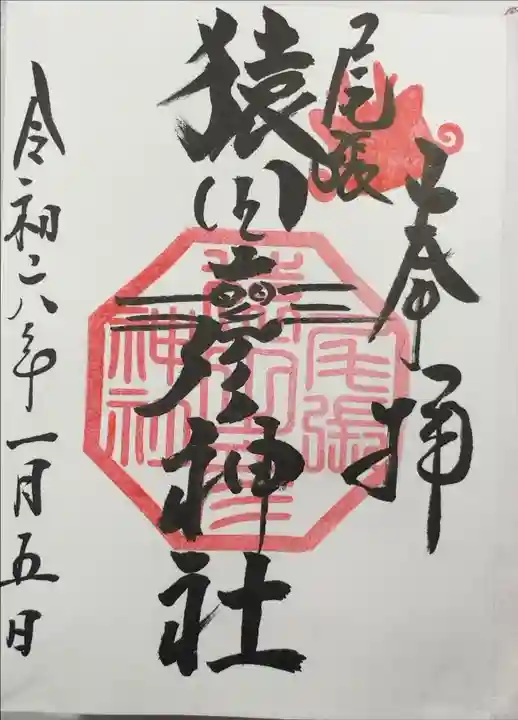 奉拝
尾張
猿田彦神社
令和六年一月五日
尾張
猿田彦
神社